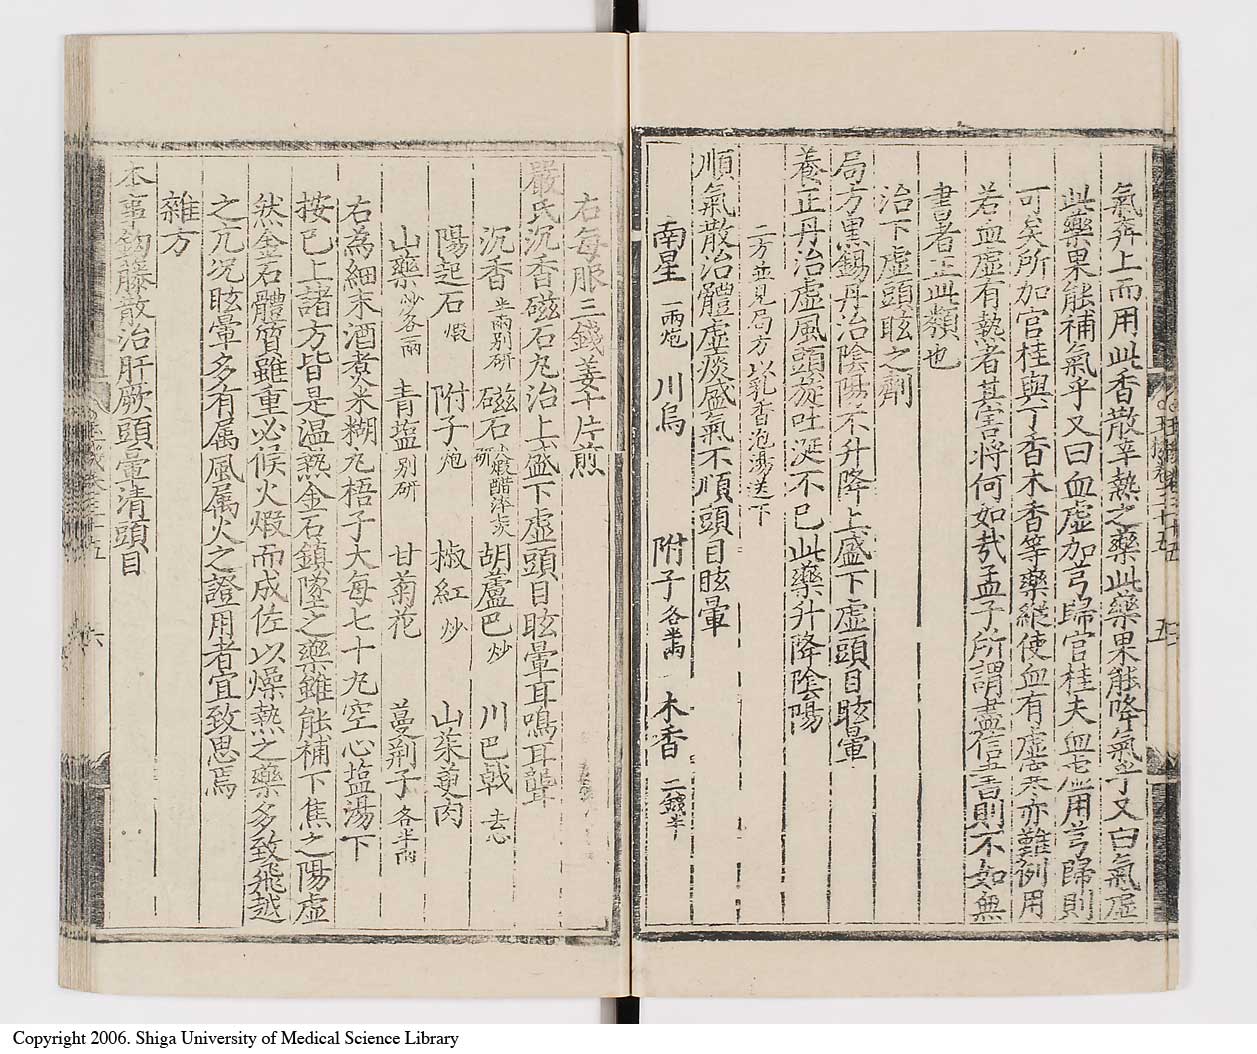 氣奔上而用此香散辛熱之藥此藥果能降氣乎又曰氣虛
此藥果能補氣乎又曰血虛加芎歸官桂夫血虛用芎歸則
可矣所加官桂與丁香木香等藥縱使血有虛寒亦難例用
若血虛有熱者其害將何如哉孟子所謂盡信書則不如無
書者正此類也
治下虛頭眩之劑
局方黑錫丹治陰陽不升降上盛下虛頭目眩暈
養正丹治虛風頭旋吐涎不已此藥升降陰陽
二方並見局方以乳香泡湯送下
順氣散治體虛痰盛氣不順頭目眩暈
南星一兩炮 川烏 附子各半兩 木香二錢半
右每服三錢姜十片煎
嚴氏沉香磁石丸治上盛下虛頭目眩暈耳鳴耳聾
沉香半兩別研 磁石火煅醋淬七次研 胡蘆巴炒 川巴戟去心
陽起石煅 附子炮 椒紅炒 山茱萸肉
山藥炒各一兩 青塩別研 甘菊花 蔓荆子各半兩
右為細末酒煮米糊丸梧子大每七十丸空心塩湯下
按已上諸方皆是温熱金石鎮墜之藥雖能補下焦之陽虛
然金石體質雖重必候火煅而成佐以燥熱之藥多致飛越
之亢况眩暈多有属風属火之證用者宜致思焉
雜方
本事鈎藤散治肝厥頭暈清頭目
六
Copyright 2006. Shiga University of Medical Science Library